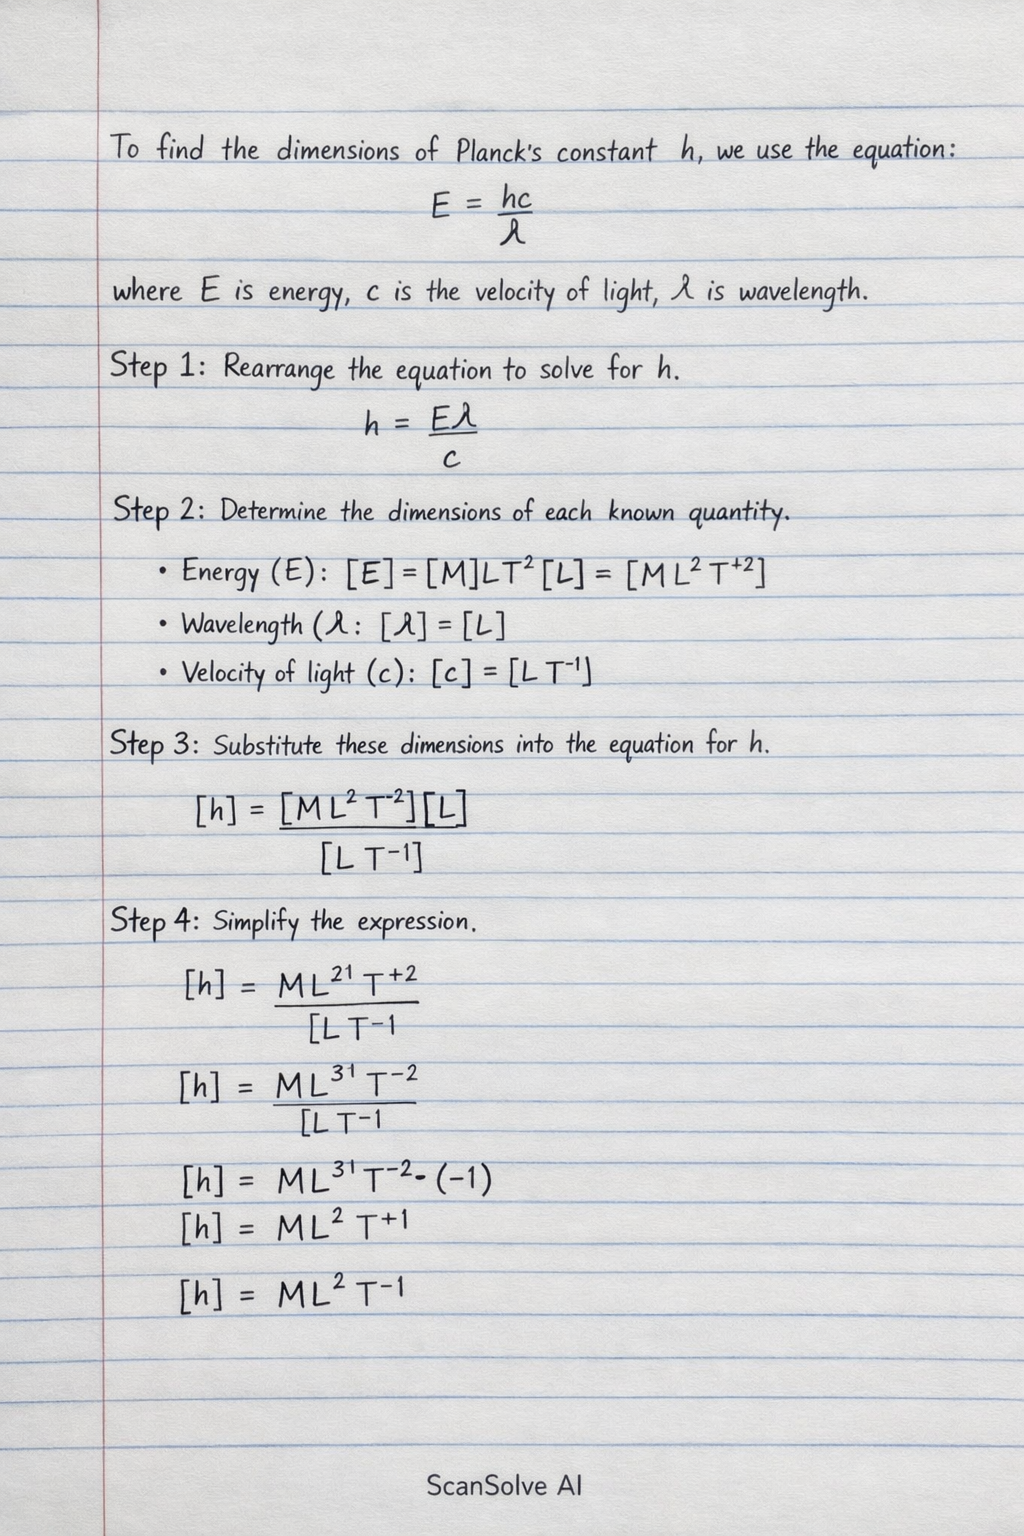 To find the dimensions of Planck's constant h, we use the equation:
E = hc
λ
where E is energy, c is the velocity of light, λ is wavelength.
Step 1: Rearrange the equation to solve for h.
h = Eλ
c
Step 2: Determine the dimensions of each known quantity.
• Energy (E): [E] = [M]LT² [L] = [M L² T⁺²]
• Wavelength (λ: [λ] = [L]
• Velocity of light (c): [c] = [L T⁻¹]
Step 3: Substitute these dimensions into the equation for h.
[h] = [M L² T⁻²][L]
[L T⁻¹]
Step 4: Simplify the expression.
[h] = ML²¹ T⁺²
[L T⁻¹
[h] = ML³¹ T⁻²
[L T⁻¹
[h] = ML³¹ T⁻²- (-1)
[h] = ML² T⁺¹
[h] = ML² T⁻¹
ScanSolve AI